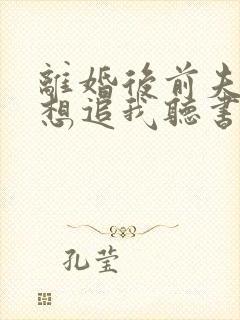 離婚後前夫
想追我聽書
孔莹